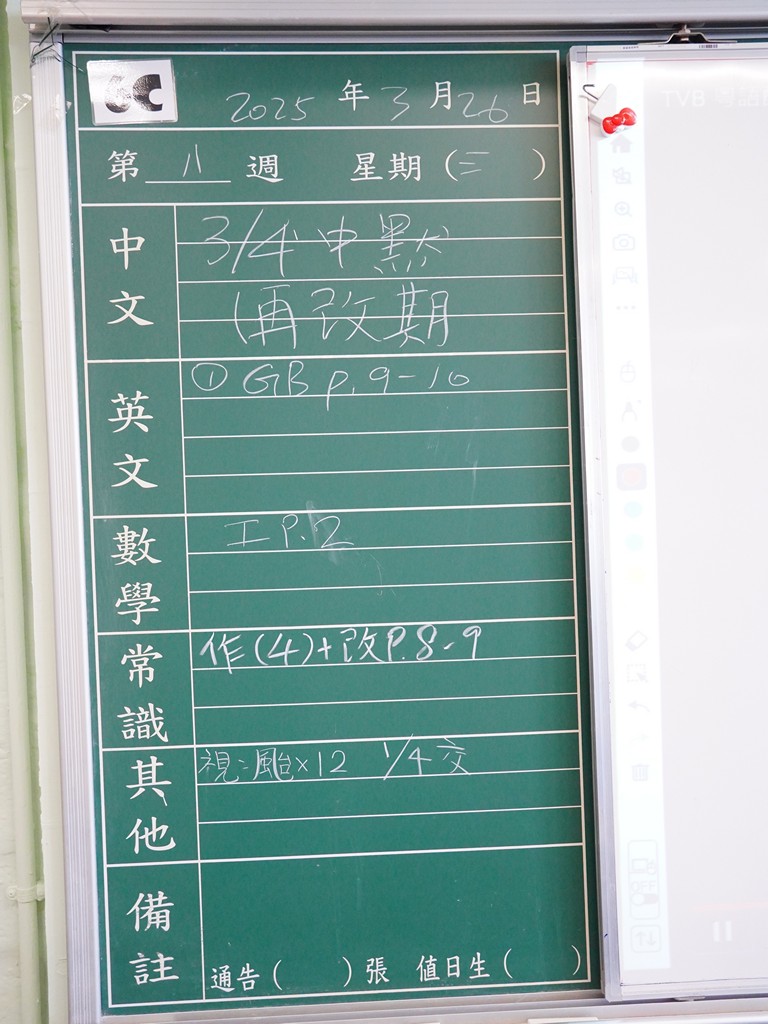 6C
2025 年 3 月 26 日
第 八 週 星期 (三 )
中文
3/4 中默
(再改期
英文
① GB p.9-10
數學
工 P.2
常識
作(4)+改P.8-9
其他
視:颱×12 1/4 交
備註
通告 ( ) 張 值日生 ( )
TVB
OFF